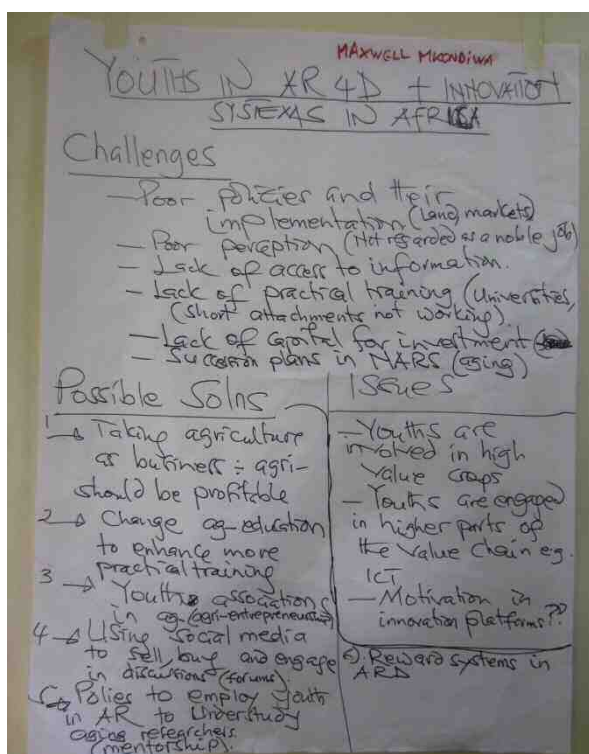 MAXWELL MKONDIWA
YOUTHS IN AR4D + INNOVATION
SYSTEMS IN AFRICA
Challenges
— Poor policies and their
implementation (Land, markets)
— Poor perception (Not regarded as a noble job)
— Lack of access to information.
— Lack of practical training (Universities,
(short attachments not working).
— Lack of capital for investment
— Succession plans in NARS (aging)
Possible Solns
1 → Taking agriculture
as business ÷ agri-
should be profitable
2 → Change ag-education
to enhance more
practical training
3 → Youths associations
in ag (agri-entrepreneurship)
4 → Using social media
to sell, buy and engage
in discussions (forums).
5 → Polies to employ youth
in AR to Understudy
aging researchers
(mentorship).
Issues
— Youths are
involved in high
value crops
— Youths are engaged
in higher parts of
the value chain eg.
ICT
— Motivation in
innovation platforms??
6). Reward systems in
ARD